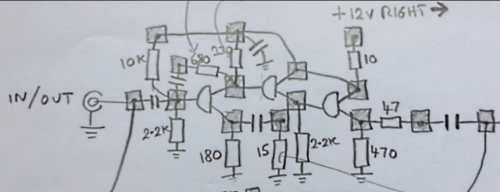 +12V RIGHT →
10K
680
220
10
IN/OUT
47
2.2K
180
15
2.2K
470